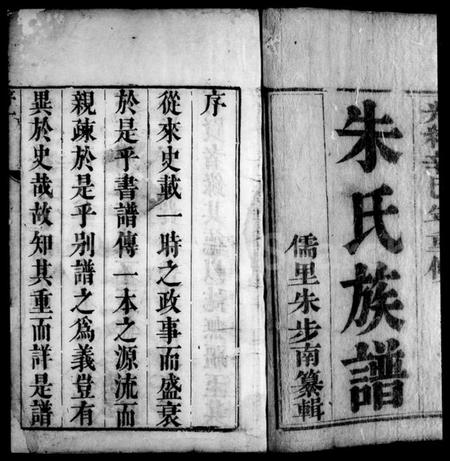 光緒辛巳年重修
朱氏族譜
儒里朱步南纂輯
序
從來史載一時之政事而盛衰
於是乎書譜傳一本之源流而
親疎於是乎别譜之為義豈有
異於史哉故知其重而詳是譜